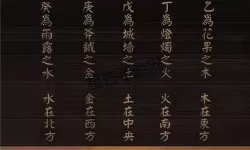 乙為花果之木　木在東方
丁為燈燭之火　火在南方
戊為城墻之土　土在中央
庚為斧鉞之金　金在西方
癸為雨露之水　水在北方